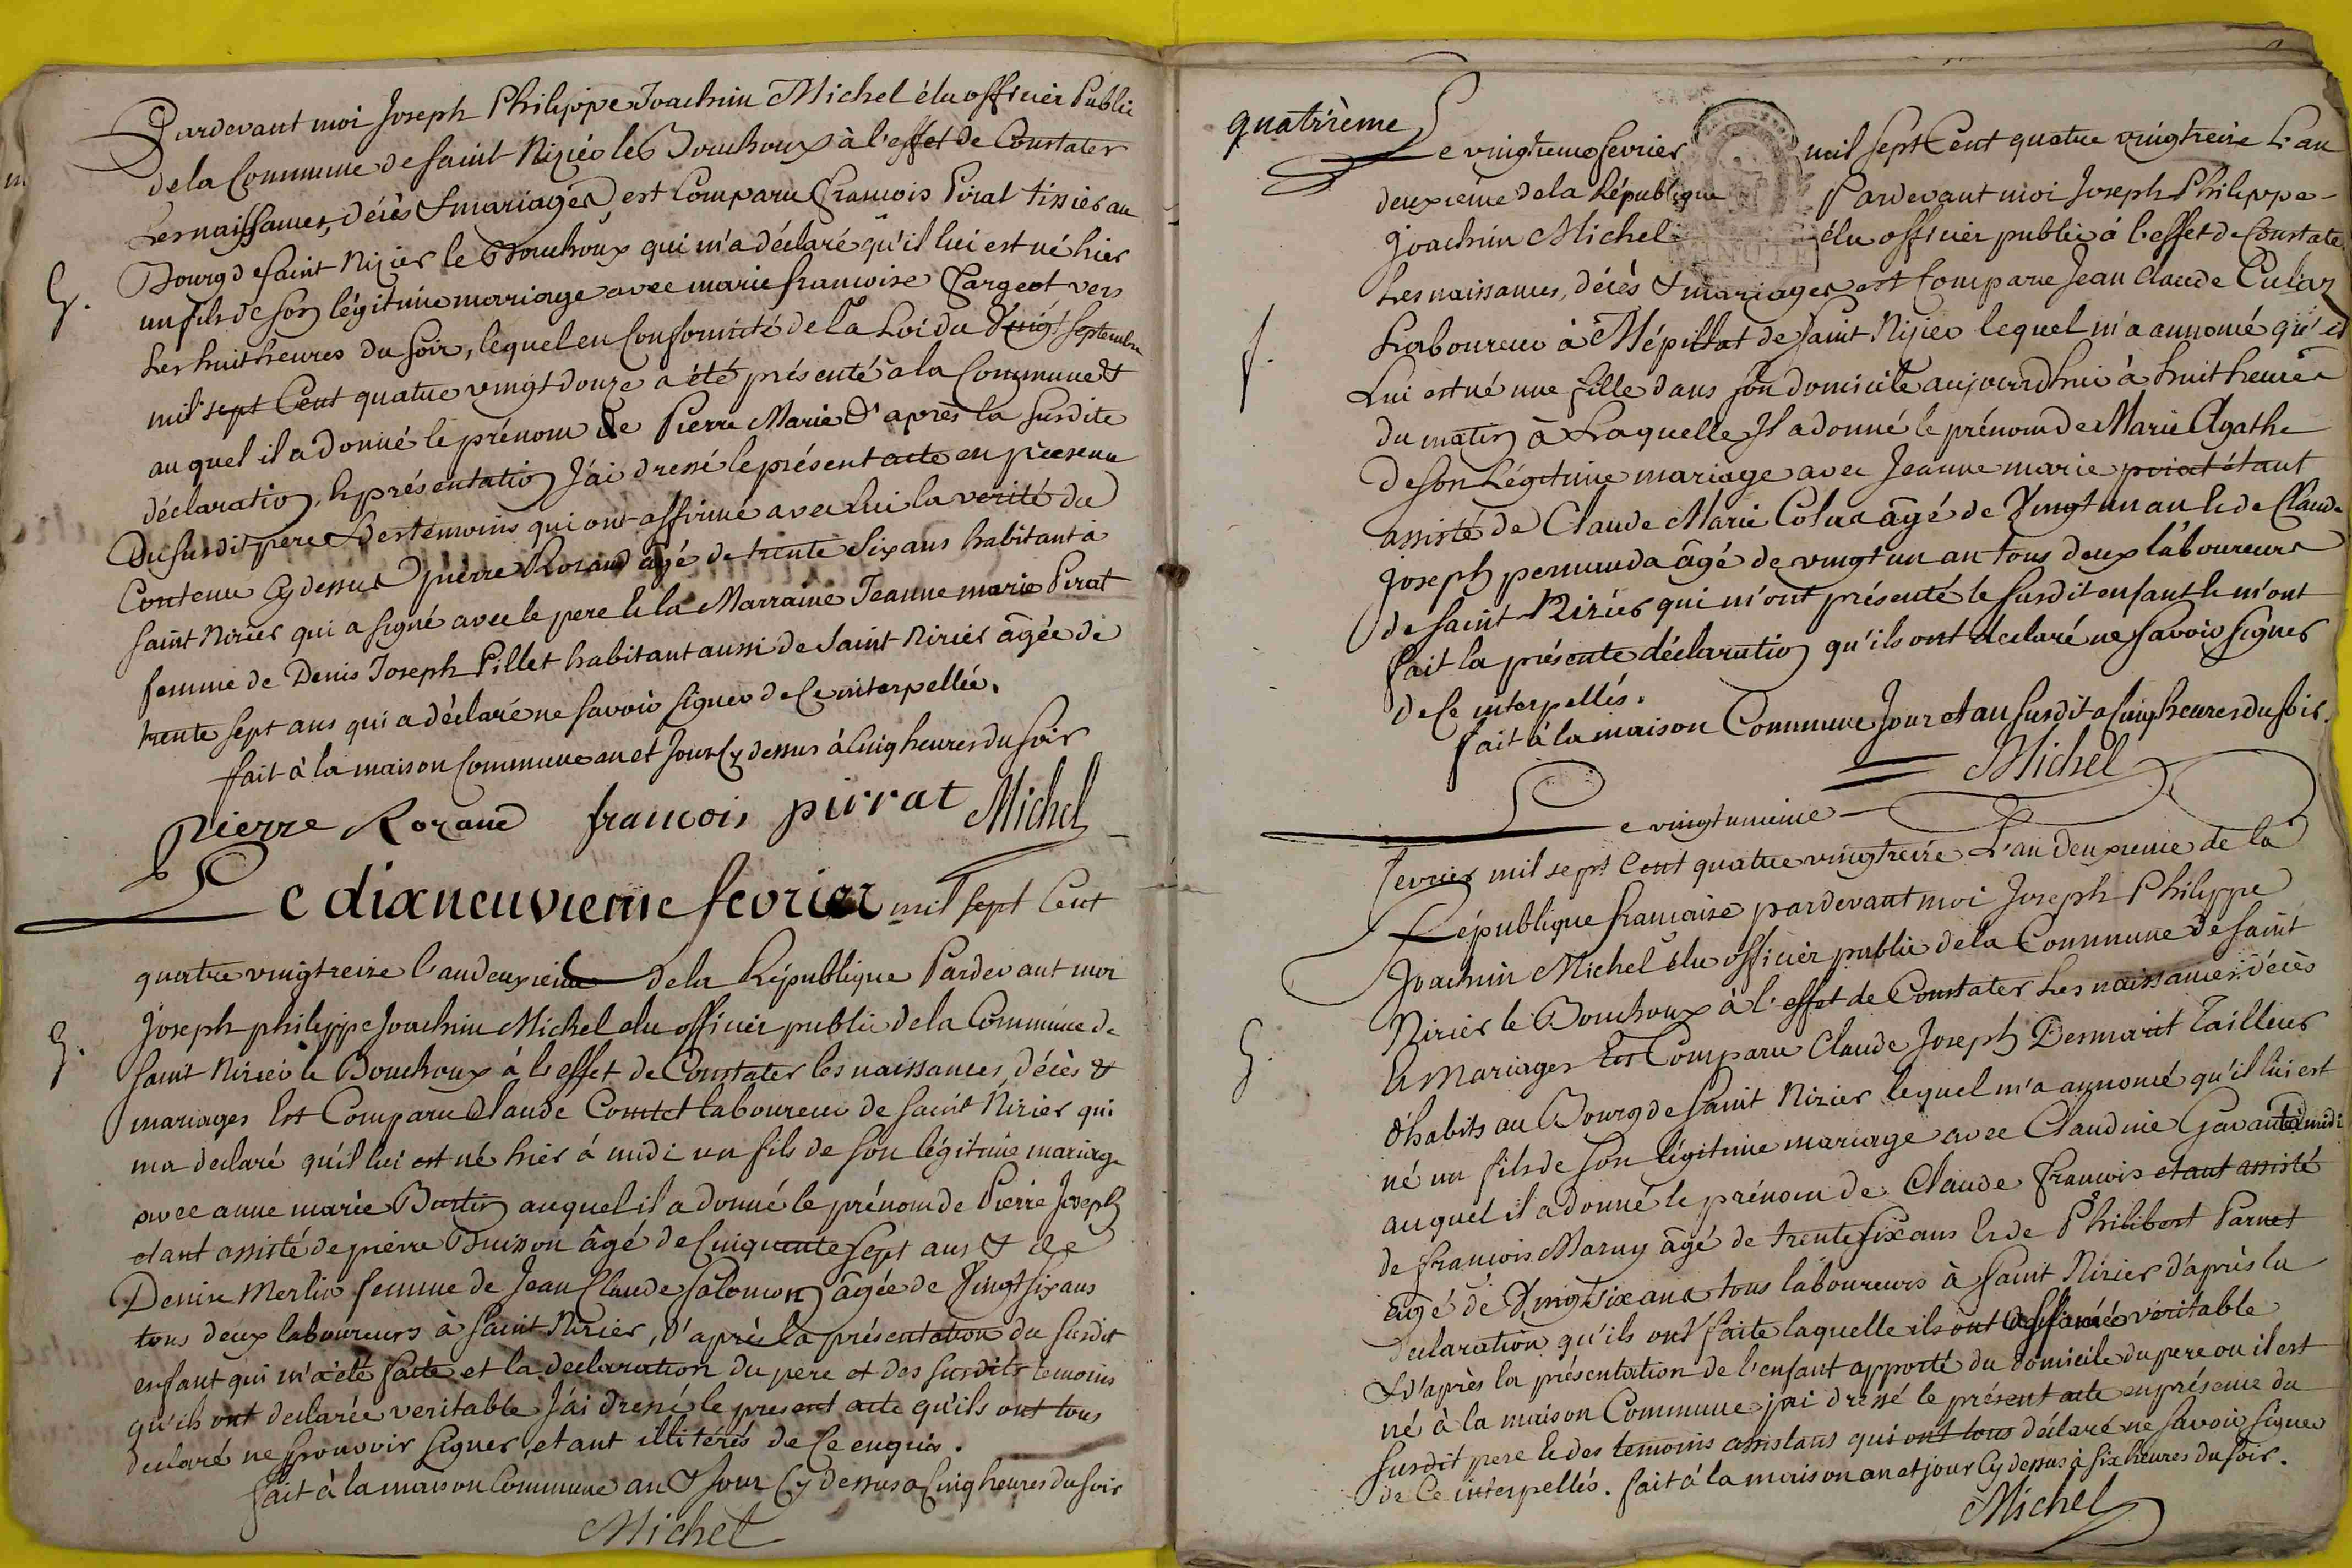 Pardevant moi Joseph Philippe Joachim Michel élu officier Public
de la Commune de saint Nizier le Bouchoux à l'effet de Constater
Les naissances, décès & mariages est Comparu francois Pirat tissier au
Bourg de saint Nizier le Bouchoux qui m'a déclaré qu'il lui est né hier
G.
un fils de son légitime mariage avec marie francoise Cargeot vers
Les huit heures du soir, lequel en Conformité de la Loi du Vingt Septembre
mil sept Cent quatre vingt douze a été présenté à la Commune &
au quel il a donné le prénom de Pierre Marie D'après la susdite
déclaration, & présentation J'ai dressé le présent acte en présence
Du susdit pere & des témoins qui ont affirmé avec lui la verité du
Contenu Cy dessus pierre Rozand âgé de trente Six ans habitant à
saint Nizier qui a signé avec le pere & la Marraine Jeanne marie Pirat
femme de Denis Joseph Pillet habitant aussi de Saint Nizier âgée de
trente sept ans qui a déclaré ne savoir signer de Ce interpellée.
fait à la maison Commune an et Jour Cy dessus à Cinq heures du soir
Pierre Rozand francois pirrat Michel
Le dixneuvieme fevrier mil sept Cent
quatre vingt treize l'an deuxieme de la République Pardevant moi
Joseph philippe Joachim Michel élu officier public de la Commune de
G.
saint Nizier le Bouchoux à l'effet de Constater les naissances, décès &
mariages Est Comparu Claude Comtet laboureur de saint Nizier qui
ma declaré qu'il lui est né hier à midi un fils de son légitime mariage
avec anne marie Bastin auquel il a donné le prénom de Pierre Joseph
etant assisté de pierre Buisson âgé de Cinquente sept ans & de
Denise Merlin femme de Jean Claude Salomon âgée de Vingt six ans
tous deux laboureurs à saint Nizier, D'après la présentation du susdit
enfant qui m'a été faite et la declaration du pere et des susdits temoins
qu'ils ont declarée veritable J'ai dressé le present acte qu'ils ont tous
declaré ne pouvoir signer, etant illitérés de Ce enquis.
fait à la maison Commune an & Jour Cy dessus à Cinq heures du soir
Michel
quatrième
Le vingtieme fevrier mil sept Cent quatre vingt treize L'an
deuxieme de la République Pardevant moi Joseph Philippe
Joachim Michel élu officier public à l'effet de Constater
Les naissances, décès & mariages est Comparu Jean Claude Culaz
f.
Laboureur à Mépillat de Saint Nizier lequel m'a annoncé qu'il
Lui est né une fille dans son domicile aujourd'hui à huit heures
du matin à Laquelle Il a donné le prénom de Marie Agathe
De son Légitime mariage avec Jeanne marie poiat étant
assisté de Claude Marie Colas âgé de Vingt un an & de Claude
Joseph pernauda âgé de vingt un an tous deux laboureurs
de saint Nizier qui m'ont présenté le susdit enfant & m'ont
fait la présente déclaration qu'ils ont déclaré ne savoir signer
de Ce interpellés.
fait à la maison Commune Jour et an susdit a Cinq heures du soir.
Michel
Le vingtunieme
fevrier mil sept Cent quatre vingt treize L'an deuxieme de la
République francaise pardevant moi Joseph Philippe
Joachim Michel élu officier public de la Commune de saint
Nizier le Bouchoux à l'effet de Constater Les naissances, décès
G.
& Mariages Est Comparu Claude Joseph Desmarit Tailleur
d'habits au Bourg de saint Nizier lequel m'a annoncé qu'il lui est
né un fils de son légitime mariage avec Claudine Gavant à midi
auquel il a donné le prénom de Claude francois etant assisté
de francois Maruy âgé de trente six ans & de Philibert Parnet
âgé de Vingt six ans tous laboureurs à saint Nizier d'après la
declaration qu'ils ont faite laquelle ils ont affirmée véritable
& d'après la présentation de l'enfant apporté du domicile du pere ou il est
né à la maison Commune j'ai dressé le présent acte en présence du
susdit pere & des temoins assistans qui ont tous déclaré ne savoir signer
de Ce interpellés. fait à la maison an et jour Cy dessus à six heures du soir.
Michel